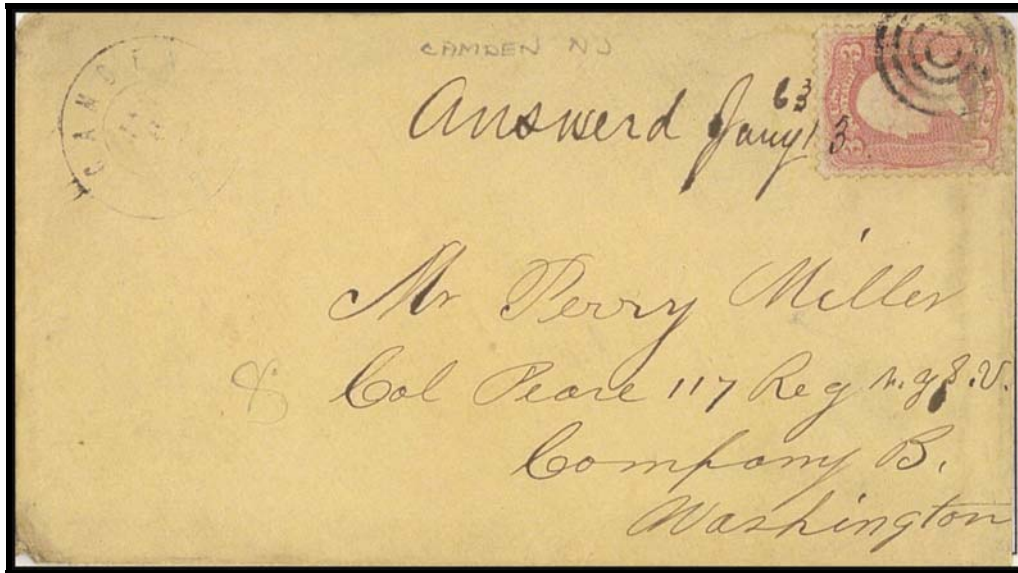 CAMDEN NJ
CAMDEN
Answerd Jany 13
63
3 3
Mr Perry Miller
Col Pease 117 Reg N.Y.S.V.
Company B.
Washington